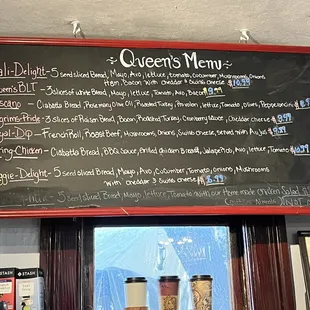 Queen's Menu
ali-Delight- 5 seed sliced Bread, Mayo, Avo, lettuce, tomato, Cucumber, Mushrooms, Onions
Ham, Bacon with cheddar & Swiss cheese $10.99
een's BLT - 3 slices of white Bread, Mayo, lettuce, Tomato, Avo, Bacon $9.99
scano - Ciabatta Bread, Rosemary Olive Oil, Roasted Turkey, Provolon, lettuce, Tomato, Olives,
lgrims-Pride- 3 slices of Bread, Bacon, Roasted Turkey, Cranberry Sauce, Cheddar cheese
yal-Dip - French Roll, Roast Beef, Mushrooms, Onions, Swiss cheese, Served with Au jus
ring-Chicken - Ciabatta Bread, BBQ Sauce, Grilled chicken Breast, Jalapeño, Avo, lettuce, Tomato
ggie-Delight- 5 seed sliced Bread, Mayo, lettuce, Avo, Cucumber, Tomato, Onions, Mushrooms
with cheddar & Swiss cheese $8.99
5 Seed Sliced Bread, Mayo, lettuce, Tomato with our Home made chicken Salad
STASH
STASH